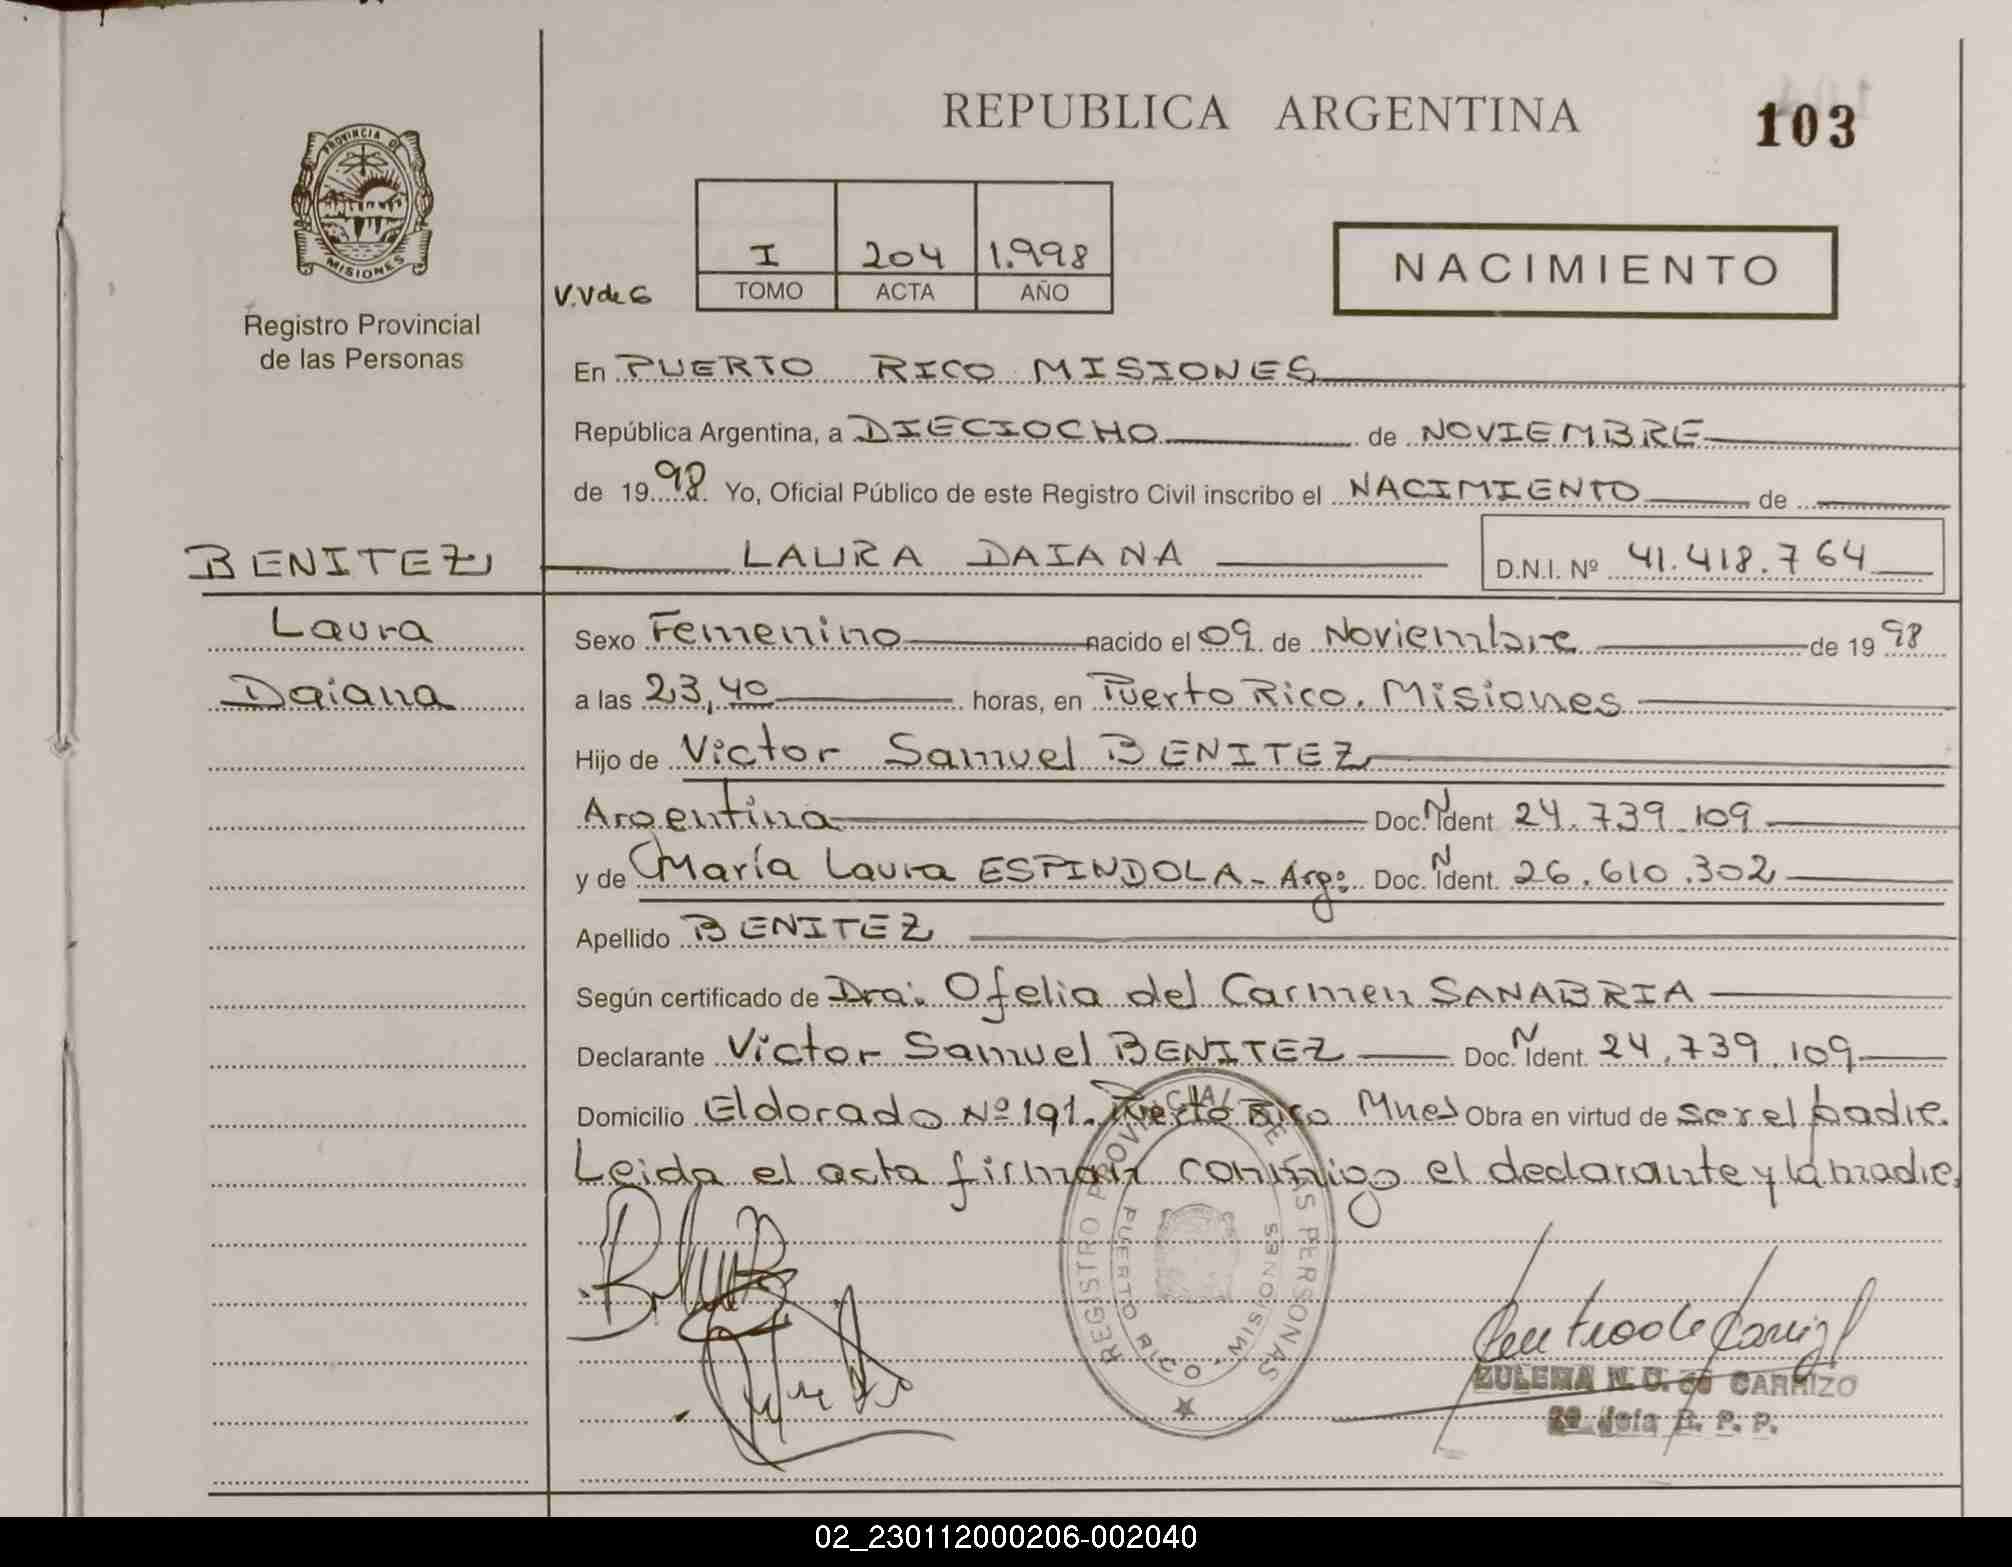 REPUBLICA ARGENTINA
103
PROVINCIA DE
MISIONES
Registro Provincial
de las Personas
V.V de G
I 204 1.998
TOMO ACTA AÑO
NACIMIENTO
En PUERTO RICO MISIONES
República Argentina, a DIECIOCHO de NOVIEMBRE
de 1998 Yo, Oficial Público de este Registro Civil inscribo el NACIMIENTO de
BENITEZ LAURA DAIANA D.N.I. Nº 41.418.764
Laura
Daiana
Sexo Femenino nacido el 09 de Noviembre de 1998
a las 23,40 horas, en Puerto Rico. Misiones
Hijo de Victor Samuel BENITEZ
Argentina Doc. N Ident. 24.739.109
y de María Laura ESPINDOLA - Arg: Doc. N Ident. 26.610.302
Apellido BENITEZ
Según certificado de Dra: Ofelia del Carmen SANABRIA
Declarante Victor Samuel BENITEZ Doc. N Ident. 24.739.109
Domicilio Eldorado Nº 191. Puerto Rico Mnes Obra en virtud de ser el padre.
Leida el acta firman conmigo el declarante y la madre.
REGISTRO PROVINCIAL DE LAS PERSONAS
PUERTO RICO - MISIONES
ZULEMA de CARRIZO
R. P. P.
02_230112000206-002040